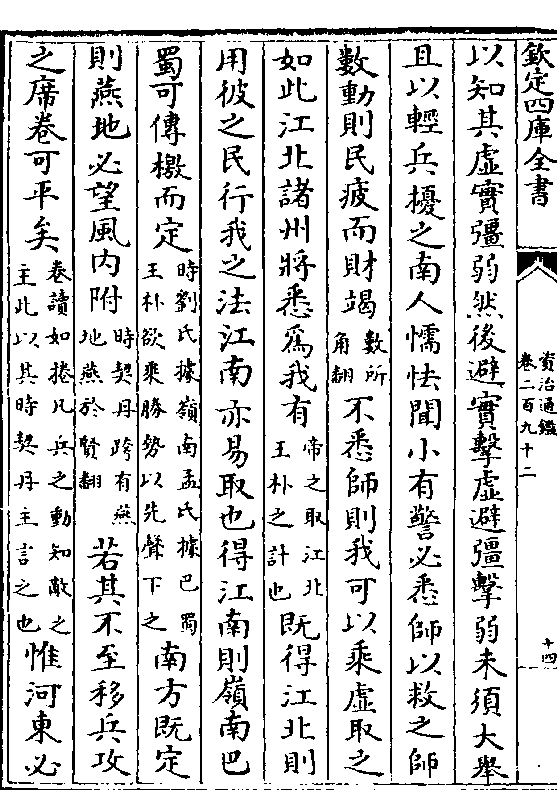 欽定四庫全書
資治通鑑
卷二百九十二
十四
以知其虛實彊弱然後避實擊虛避彊擊弱未須大舉
且以輕兵擾之南人懦怯聞小有警必悉師以救之師
數動則民疲而財竭數所角翻不悉師則我可以乘虛取之
如此江北諸州將悉爲我有帝之取江北王朴之計也既得江北則
用彼之民行我之法江南亦易取也得江南則嶺南巴
蜀可傳檄而定時劉氏據嶺南孟氏據巴蜀王朴欲乘勝勢以先聲下之南方既定
則燕地必望風内附時契丹跨有燕地燕於賢翻若其不至移兵攻
之席卷可平矣卷讀如捲凡兵之動知敵之主此以其時契丹主言之也惟河東必